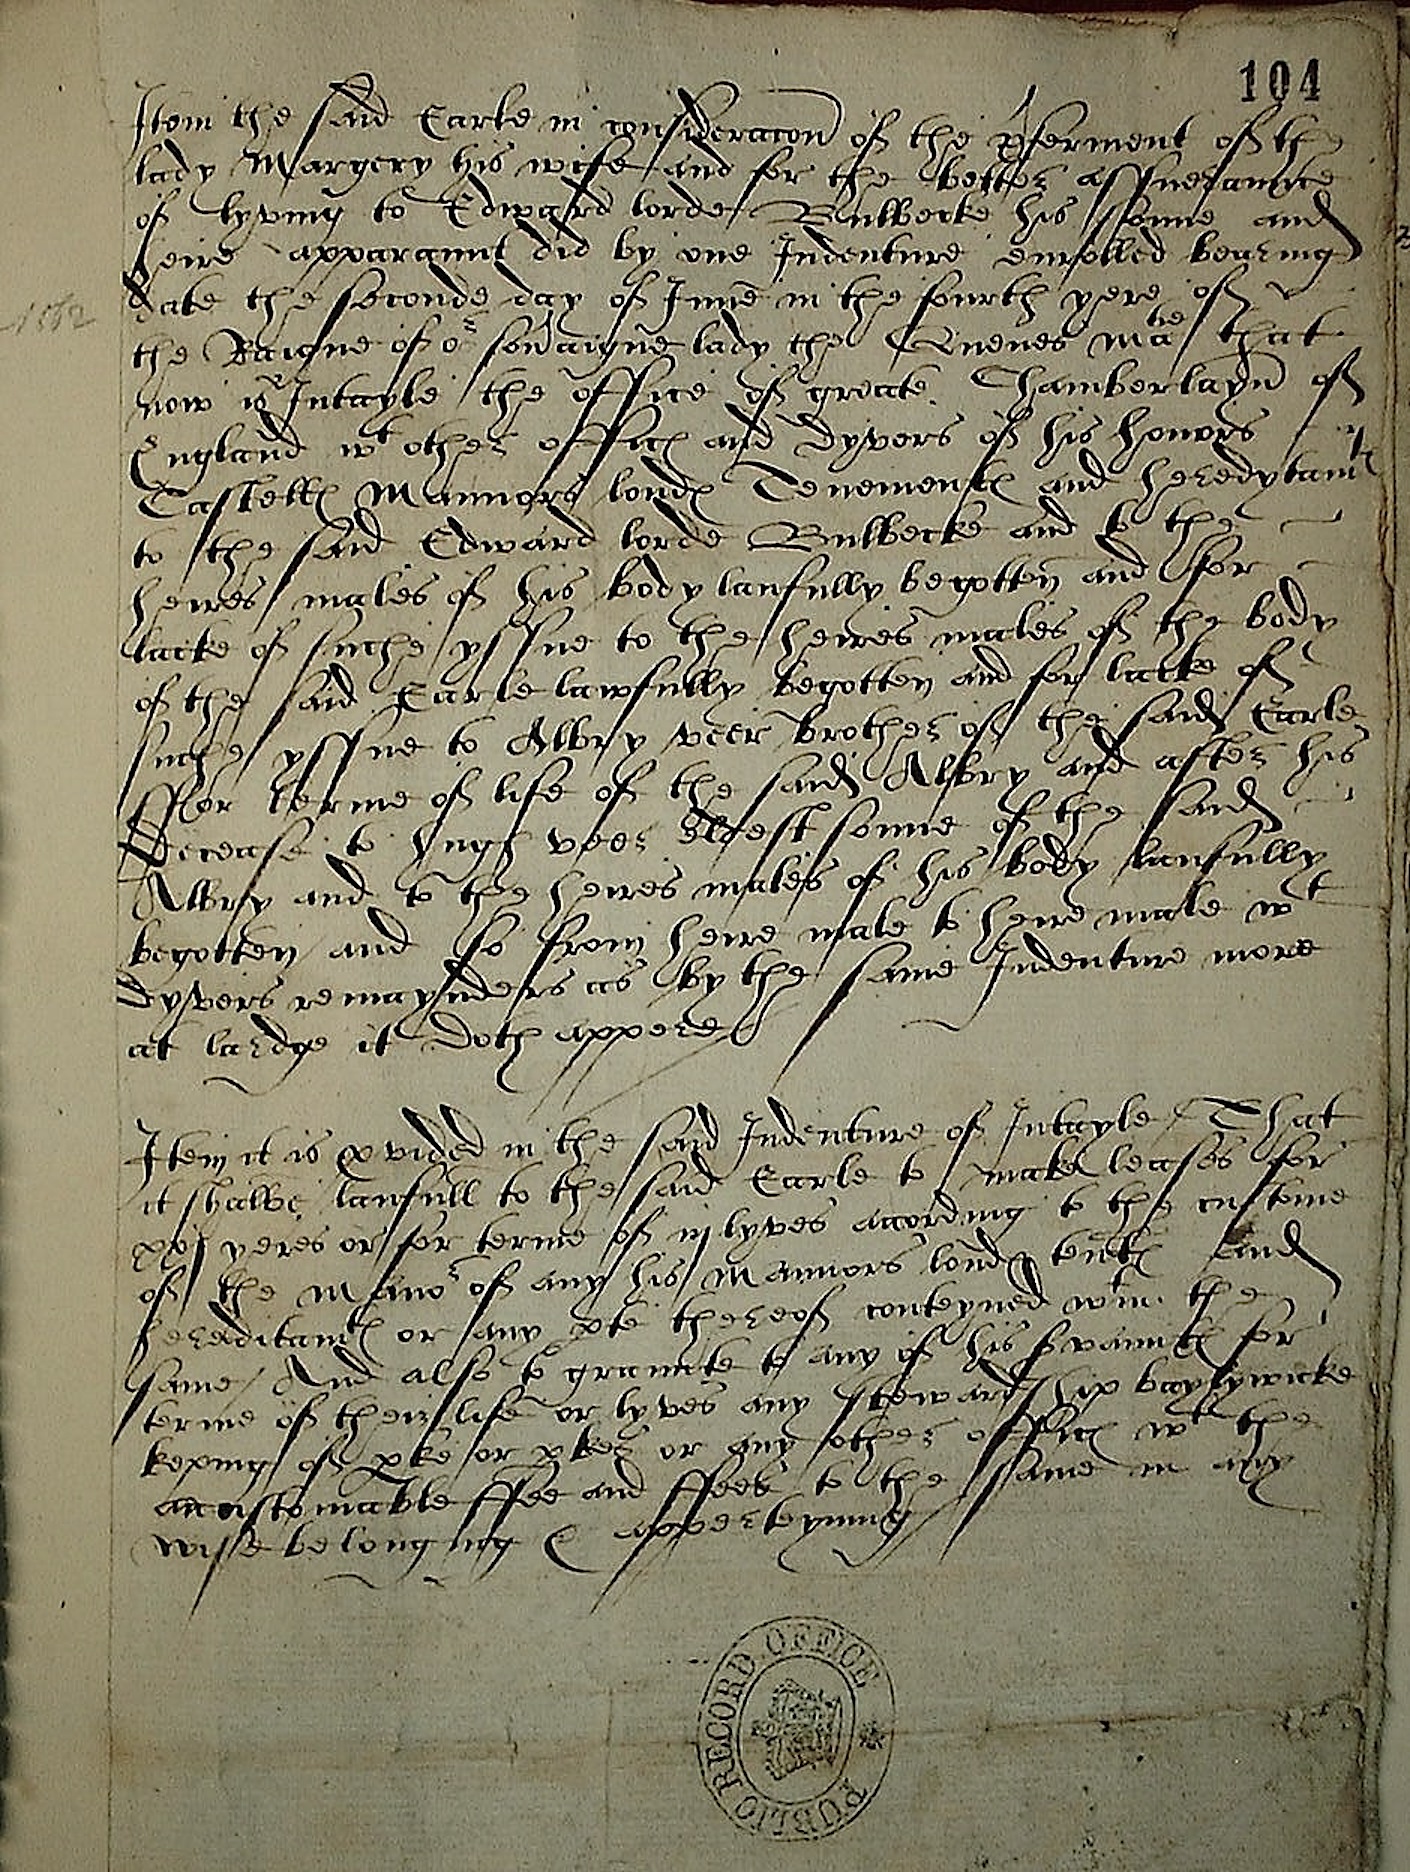 104
Item the said Earle in consideracon of the pferment of the
lady Margery his wife and for the better assueraunce
of lyving to Edward lorde Bulbecke his sonne and
heire apparaunt did by one Indenture enrolled bearing
date the seconde day of June in the fourth yere of
1562
the Raigne of or soueraigne lady the Quenes matie that
now is Intayle the office of greate Chamberlayn of
England wt other offices and dyvers of his honors
Castelles Mannors londes Tenementes and heredytamtes
to the said Edward lorde Bulbecke and to the
heires males of his body laufully begotten and for
lacke of suche yssue to the heires males of the body
of the said Earle lawfully begotten and for lacke of
suche yssue to Albry veer brother of the said Earle
ffor terme of life of the said Albry and after his
decease to hugh veer eldest sonne of the said
Albry and to the heires males of his body laufully
begotten and so from heire male to heire male wt
dyvers remaynders as by the same Indenture more
at lardge it doth appere
Item it is pvided in the said Indenture of Intayle That
it shalbe laufull to the said Earle to make leases for
xxj yeres or for terme of iij lyves according to the custome
of the manor of any his Mannors londes tentes and
hereditamtes or any pte thereof conteyned wtin the
same / And also to graunte to any of his svauntes for
terme of their life or lyves any stewardship baylywicke
keping of pke or pkes or any other offices wt the
accustomable ffee and ffees to the same in any
wise belonging & apperteyning
PUBLIC RECORD OFFICE